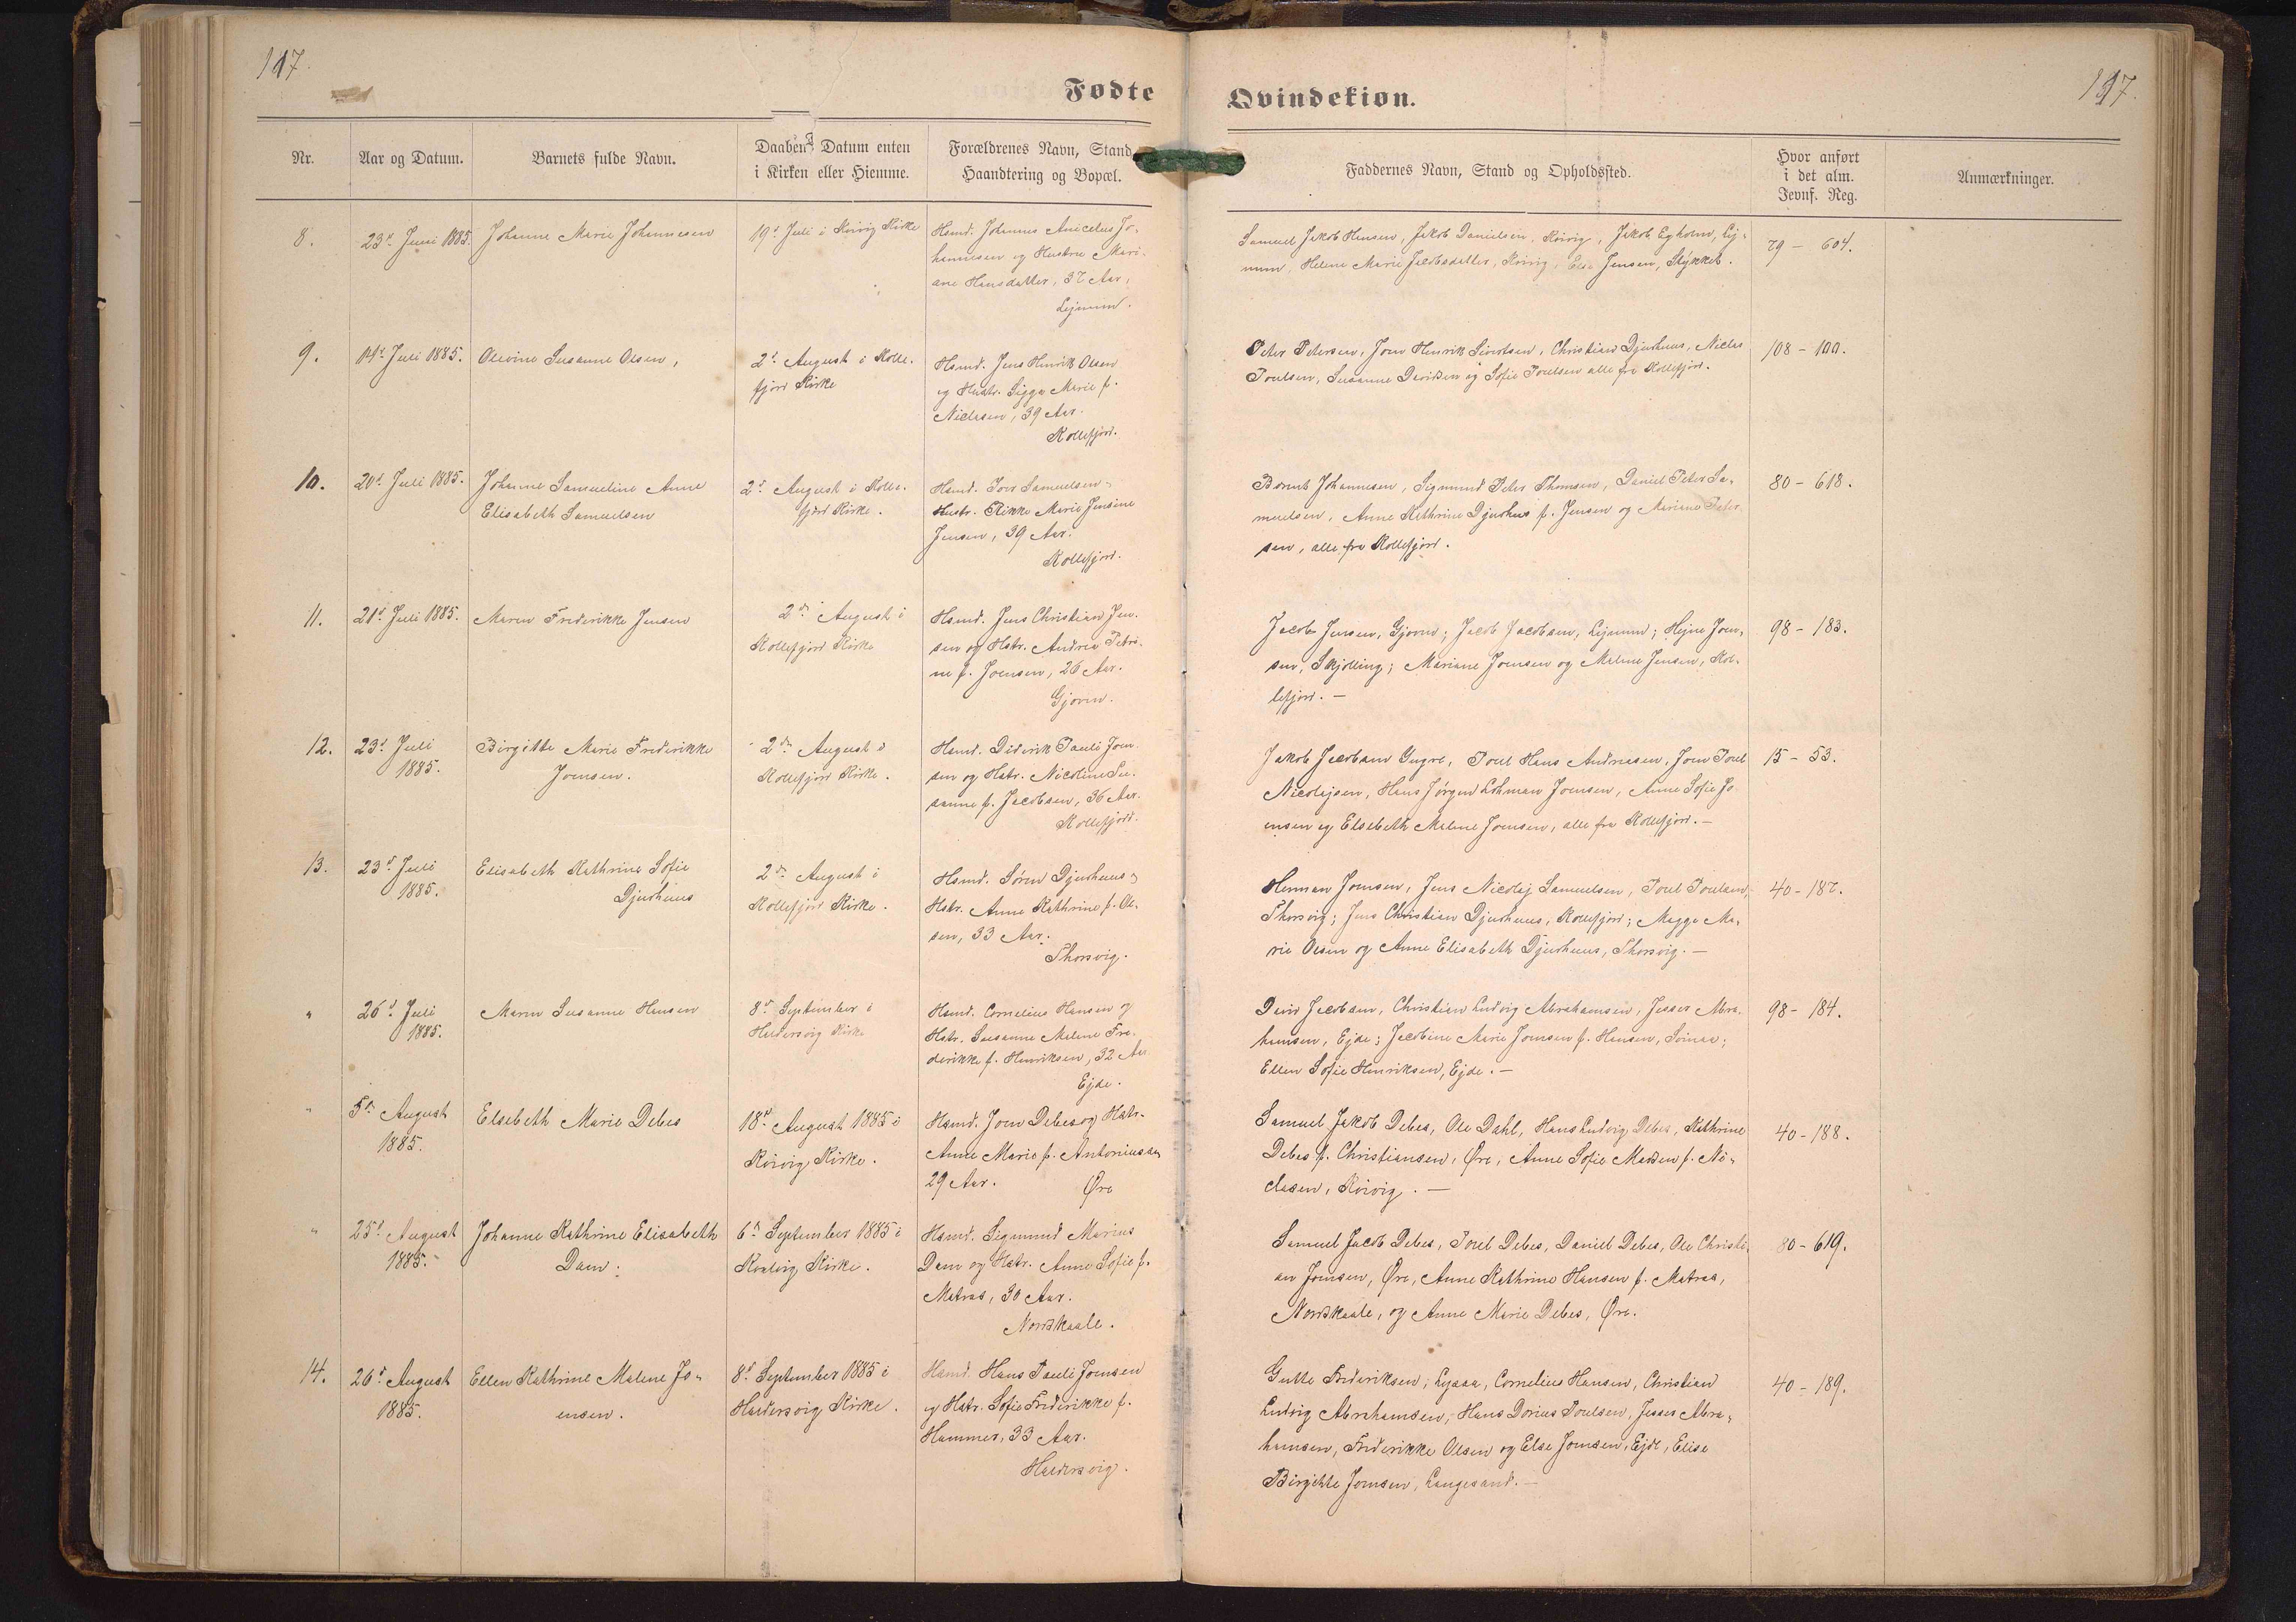 117.
117.
Fødte
Qvindekiøn.
Nr.
Aar og Datum.
Barnets fulde Navn.
Daabens Datum enten
i Kirken eller Hiemme.
Forældrenes Navn, Stand,
Haandtering og Bopæl.
Faddernes Navn, Stand og Opholdssted.
Hvor anført
i det alm.
Jevnf. Reg.
Anmærkninger.
8.
23d Juni 1885.
Johanne Marie Johannesen
19d Juli i Kvivig Kirke
Hsmd. Johannes Anicetus Jo-
hannesen og Hustru Mari-
ane Hansdatter, 37 Aar,
Lejnum.
Samuel Jakob Hansen, Jakob Danielsen, Kvivig, Jakob Egholm, Lej-
num, Helene Marie Jacobsdatter, Kvivig, Else Jensen, Stykket.
79 - 604.
9.
14d Juli 1885.
Olevine Susanne Olsen,
2d August i Kolle-
fjord Kirke
Hsmd. Jens Henrik Olsen
og Hustr. Sigga Marie f.
Niclasen, 39 Aar.
Kollefjord.
Peter Petersen, Joen Henrik Sivertsen, Christian Djurhuus, Niclas
Poulsen, Susanne Davidsen og Sofie Poulsen alle fra Kollefjord.
108 - 100.
10.
20d Juli 1885.
Johanne Samueline Anne
Elisabeth Samuelsen
2d August i Kolle-
fjord Kirke.
Hsmd. Poul Samuelsen
Hustr. Rikke Marie Jensine
Jensen, 39 Aar.
Kollefjord.
Berent Johannesen, Sigmund Peter Thomsen, Daniel Peter Sa-
muelsen, Anne Kathrine Djurhus f. Jensen og Mariane Peter
sen, alle fra Kollefjord.
80 - 618.
11.
21d Juli 1885.
Maren Frederikke Jensen
2den August i
Kollefjord Kirke
Hsmd. Jens Christian Jen-
sen og Hstr. Andrea Petri-
ne f. Joensen, 26 Aar.
Gjovin.
Jacob Jensen, Gjovin; Jacob Jacobsen, Lejnum; Hejne Joen-
sen, Skjelling; Mariane Joensen og Malene Jensen, Kol-
lefjord. -
98 - 183.
12.
23d Juli
1885.
Birgitte Marie Frederikke
Joensen.
2den August i
Kollefjord Kirke.
Hsmd. Diderik Pauli Joen-
sen og Hstr. Nicoline Su-
sanne f. Jacobsen, 36 Aar.
Kollefjord.
Jakob Jacobsen Yngre, Poul Hans Andreasen, Joen Poul
Nicolejsen, Hans Jørgen Lohman Joensen, Anne Sofie Jo-
ensen og Elsebeth Malene Joensen, alle fra Kollefjord. -
15 - 53.
13.
23d Juli
1885.
Elisabeth Kathrine Sofie
Djurhuus
2den August i
Kollefjord Kirke.
Hsmd. Søren Djurhuus og
Hstr. Anne Kathrine f. Ol-
sen, 33 Aar.
Thorsvig.
Herman Joensen, Jens Nicolaj Samuelsen, Poul Poulsen,
Thorsvig; Jens Christian Djurhuus, Kollefjord; Magga Ma-
rie Olsen og Anne Elisabeth Djurhuus, Thorsvig. -
40 - 187.
"
26d Juli
1885.
Maren Susanne Hansen
8d September i
Haldersvig Kirke
Hsmd. Cornelius Hansen og
Hstr. Susanne Malene Fre-
derikke f. Henriksen, 32 Aar
Ejde.
David Jacobsen, Christian Ludvig Abrahamsen, Jesser Abra-
hamsen, Ejde; Jacobine Marie Joensen f. Hansen,
Ellen Sofie Henriksen, Ejde. -
98 - 184.
"
5d August
1885.
Elsebeth Marie Debes
18d August 1885 i
Kvivig Kirke.
Hsmd. Joen Debes og Hstr.
Anne Marie f. Antoniussen
29 Aar. Øre
Samuel Jakob Debes, Ole Dahl, Hans Ludvig Debes, Kathrine
Debes f. Christiansen, Øre, Anne Sofie Madsen f. Ni-
clasen, Kvivig. -
40 - 188.
"
25d August
1885.
Johanne Kathrine Elisabeth
Dam.
6d September 1885 i
Kvalvig Kirke.
Hsmd. Sigmund Marius
Dam og Hstr. Anne Sofie f.
Matras, 30 Aar.
Nordskaale.
Samuel Jacob Debes, Poul Debes, Daniel Debes, Ole Christi-
an Joensen, Øre, Anne Kathrine Hansen f. Matras,
Nordskaale, og Anne Marie Debes, Øre.
80 - 619.
14.
26d August
1885.
Ellen Kathrine Malene Jo-
ensen.
8d September 1885 i
Haldersvig Kirke.
Hsmd. Hans Pauli Joensen
og Hstr. Sofie Frederikke f.
Hammer, 33 Aar.
Haldersvig.
Gutte Frederiksen, Ljaaa, Cornelius Hansen, Christian
Ludvig Abrahamsen, Hans Dorius Poulsen, Jesser Abra-
hamsen, Frederikke Olsen og Else Joensen, Ejde, Elise
Birgitte Joensen, Langesand. -
40 - 189.